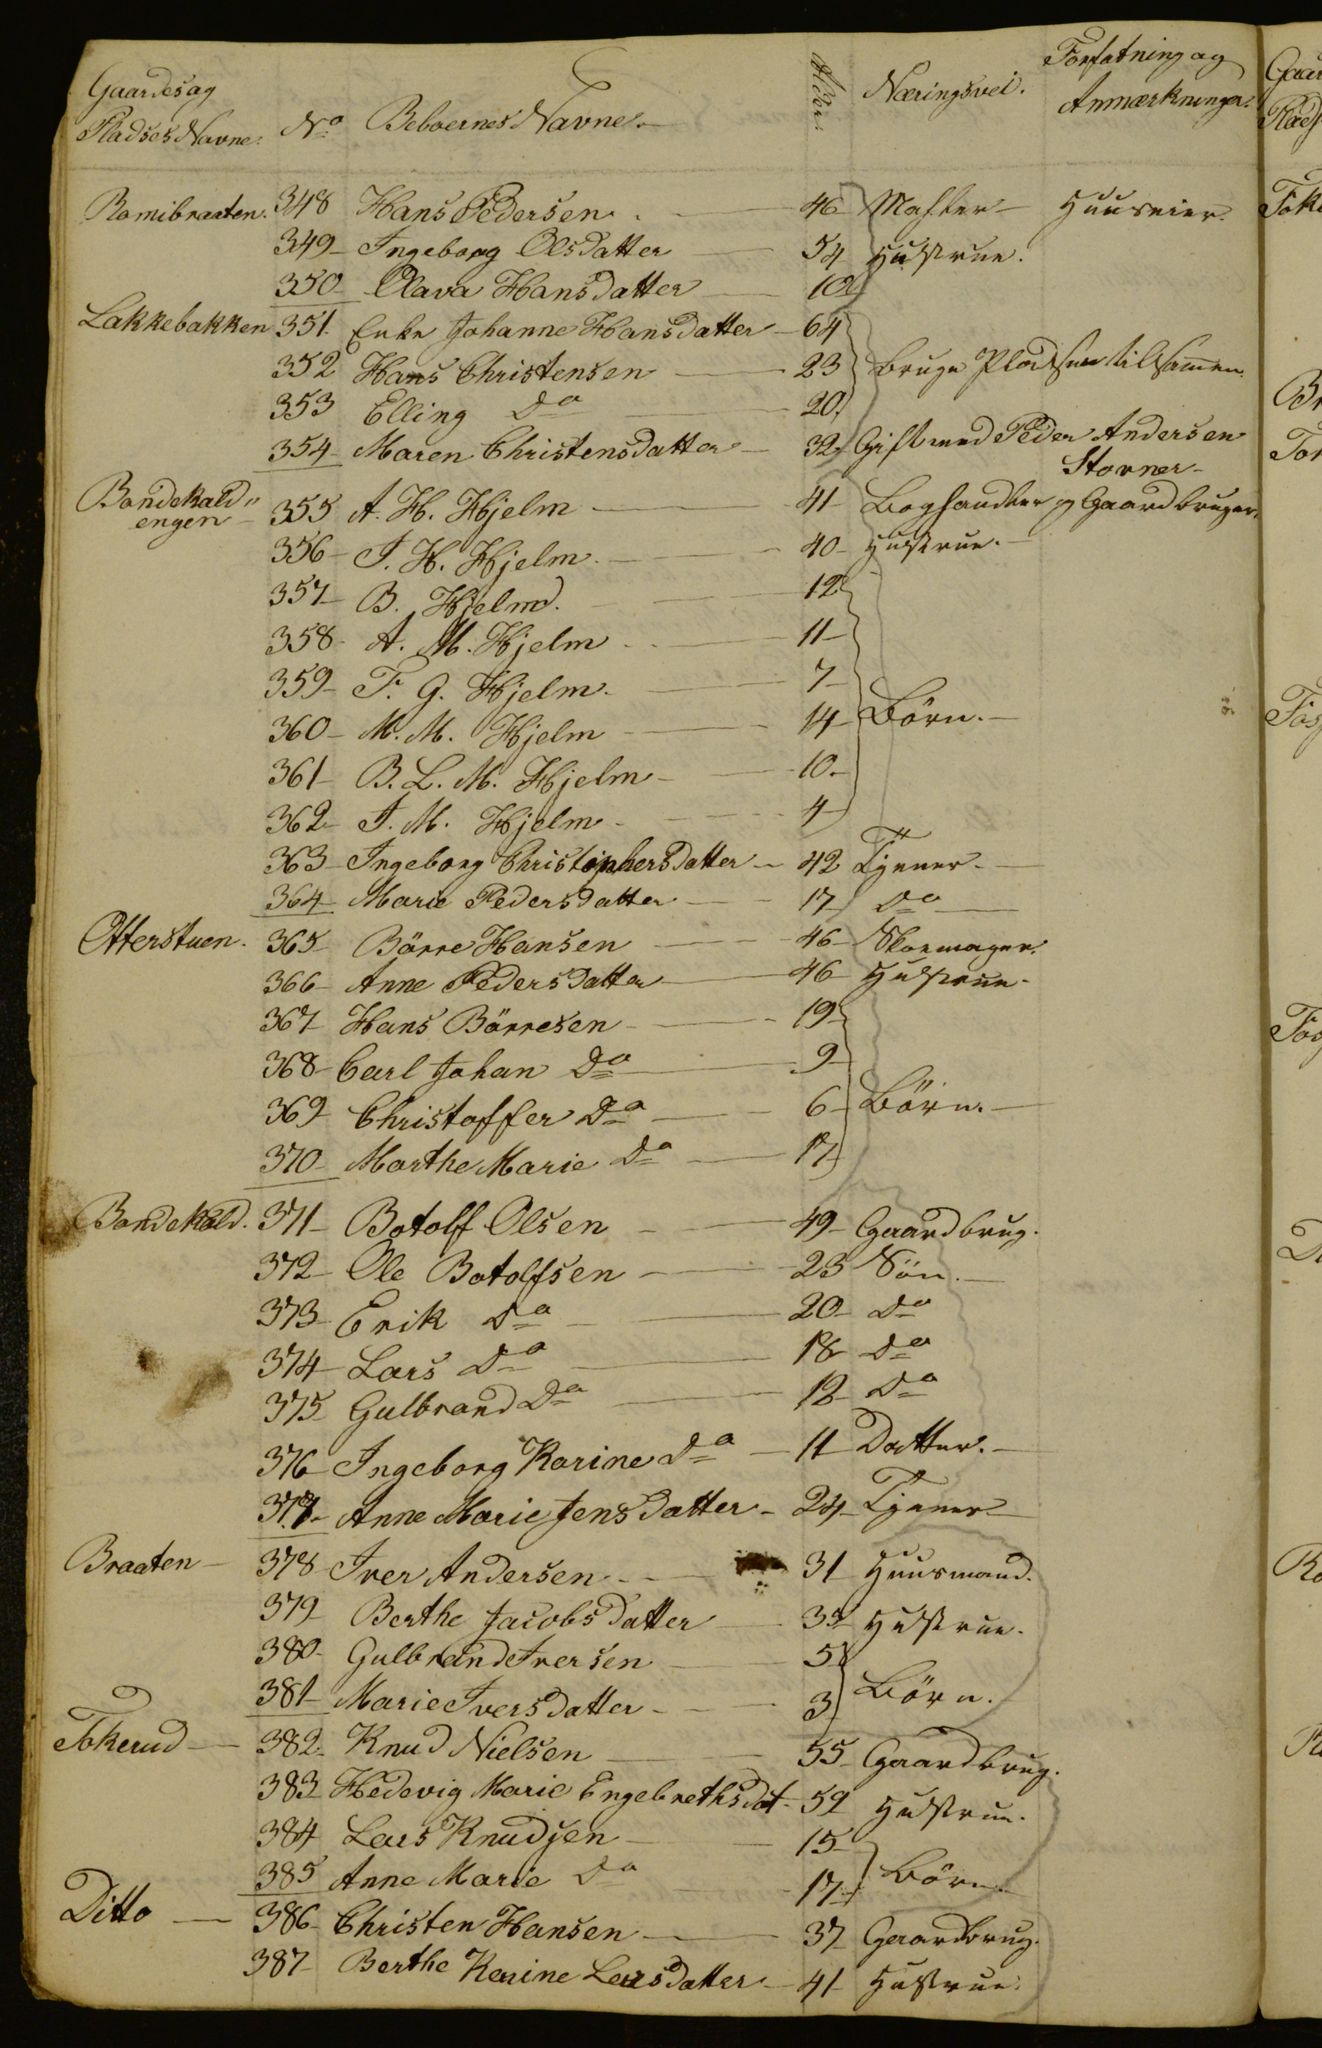 Gaardes og Pladses Navne. No Beboernes Navne. Alder. Næringsvei. Forfatning og Anmærkninger.
Romibraaten. 348 Hans Pedersen 46 Huuseier.
349 Ingeborg Olsdatter 54 Hustrue.
350 Olava Hansdatter 10
Lakkebakken 351 Enke Johanne Hansdatter 64
352 Hans Christensen 23 bruge Pladsen tilsamen.
353 Elling Do 20
354 Maren Christensdatter 32 Gift med Peder Andersen
Stovner
Bondekald"
engen 355 A. H. Hjelm 41 Boghandler og Gaardbruger.
356 I. H. Hjelm 40 Hustrue.
357 B. Hjelm 12
358 A. M. Hjelm 11
359 F. G. Hjelm 7
360 M. M. Hjelm 14 Börn.
361 B. L. M. Hjelm 10
362 I. M. Hjelm 4
363 Ingeborg Christophersdatter 42 Tjener
364 Marie Pedersdatter 17 Do
Otterstuen. 365 Börre Hansen 46 Skoemager.
366 Anne Pedersdatter 46 Hustrue.
367 Hans Börresen 19
368 Carl Johan Do 9
369 Christoffer Do 6 Börn.
370 Marthe Marie Do 17
Bondekald. 371 Botolf Olsen 49 Gaardbrug.
372 Ole Botolfsen 23 Sön.
373 Erik Do 20 Do
374 Lars Do 18 Do
375 Gulbrand Do 12 Do
376 Ingeborg Karine Do 11 Datter.
377 Anne Marie Jensdatter 24 Tjener
Braaten 378 Iver Andersen 31 Huusmand.
379 Berthe Jacobsdatter Hustrue.
380 Gulbrand Iversen 5
381 Marie Iversdatter 3 Börn.
Tokerud 382 Knud Nielsen 55 Gaardbrug.
383 Hedevig Marie Engebrethsdat 59 Hustrue.
384 Lars Knudsen 15
385 Anne Marie Do 17 Börn.
Ditto 386 Christen Hansen 37 Gaardbrug.
387 Berthe Karine Larsdatter 41 Hustrue.